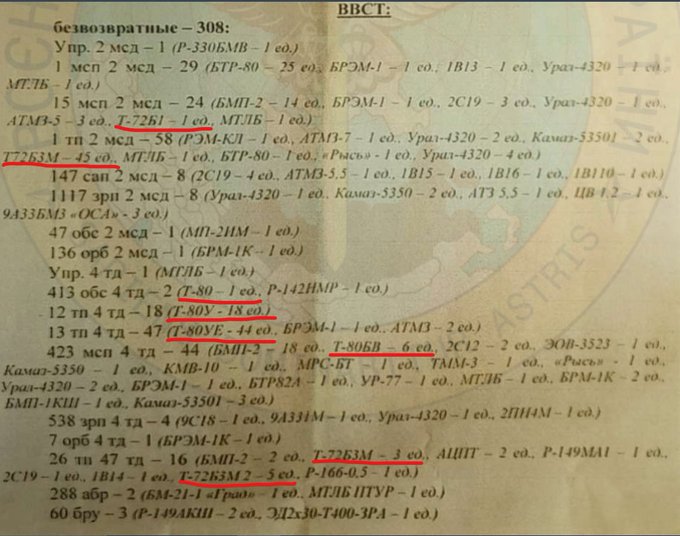 ВВСТ:
безвозвратные – 308:
Упр. 2 мсд – 1 (Р-330БМВ – 1 ед.)
1 мсп 2 мсд – 29 (БТР-80 – 25 ед., БРЭМ-1 – 1 ед., 1В13 – 1 ед., Урал-4320 – 1 ед.,
МТЛБ – 1 ед.)
15 мсп 2 мсд – 24 (БМП-2 – 14 ед., БРЭМ-1 – 1 ед., 2С19 – 3 ед., Урал-4320 – 1 ед.,
АТМЗ-5 – 3 ед., Т-72Б1 – 1 ед., МТЛБ – 1 ед.)
1 тп 2 мсд – 58 (РЭМ-КЛ – 1 ед., АТМЗ-7 – 1 ед., Урал-4320 – 2 ед., Камаз-53501 – 2 ед.,
Т72Б3М – 45 ед., МТЛБ – 1 ед., БТР-80 – 1 ед., «Рысь» - 1 ед., Урал-4320 – 4 ед.)
147 сап 2 мсд – 8 (2С19 – 4 ед., АТМЗ-5,5 – 1 ед., 1В15 – 1 ед., 1В16 – 1 ед., 1В110 – 1 ед.)
1117 зрп 2 мсд – 8 (Урал-4320 – 1 ед., Камаз-5350 – 2 ед., АТЗ 5,5 – 1 ед., ЦВ 1,2 – 1 ед.,
9А33БМ3 «ОСА» - 3 ед.)
47 обс 2 мсд – 1 (МП-2ИМ – 1 ед.)
136 орб 2 мсд – 1 (БРМ-1К – 1 ед.)
Упр. 4 тд – 1 (МТЛБ – 1 ед.)
413 обс 4 тд – 2 (Т-80 – 1 ед., Р-142НМР – 1 ед.)
12 тп 4 тд – 18 (Т-80У - 18 ед.)
13 тп 4 тд – 47 (Т-80УЕ - 44 ед., БРЭМ-1 – 1 ед., АТМЗ – 2 ед.)
423 мсп 4 тд – 44 (БМП-2 – 18 ед., Т-80БВ – 6 ед., 2С12 – 2 ед., ЭОВ-3523 – 1 ед.,
Камаз-5350 – 1 ед., КМВ-10 – 1 ед., МРС-БТ – 1 ед., ТММ-3 – 1 ед., «Рысь» - 1 ед.,
Урал-4320 – 2 ед., БРЭМ-1 – 1 ед., БТР82А – 1 ед., УР-77 – 1 ед., МТЛБ – 1 ед., БРМ-1К – 2 ед.,
БМП-1КШ – 1 ед., Камаз-53501 – 3 ед.)
538 зрп 4 тд – 4 (9С18 – 1 ед., 9А331М – 1 ед., Урал-4320 – 1 ед., 2ПН4М – 1 ед.)
7 орб 4 тд – 1 (БРЭМ-1К – 1 ед.)
26 тп 47 тд – 16 (БМП-2 – 2 ед., Т-72Б3М – 3 ед., АЦПТ – 2 ед., Р-149МА1 – 1 ед.,
2С19 – 1 ед., 1В14 – 1 ед., Т-72Б3М 2 – 5 ед., Р-166-0,5 – 1 ед.)
288 абр – 2 (БМ-21-1 «Град» – 1 ед., МТЛБ ПТУР – 1 ед.)
60 бру – 3 (Р-149АКШ – 2 ед., ЭД2х30-Т400-ЗРА – 1 ед.)
ASTRIS